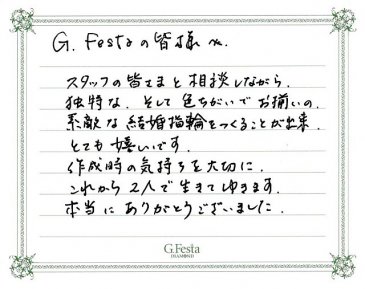 G. Festaの皆様へ.
スタッフの皆さまと相談しながら、
独特な、そして色ちがいでお揃いの、
素敵な結婚指輪をつくることが出来、
とても嬉しいです。
作成時の気持ちを大切に、
これから2人で生きてゆきます。
本当にありがとうございました。
G.Festa
DIAMOND